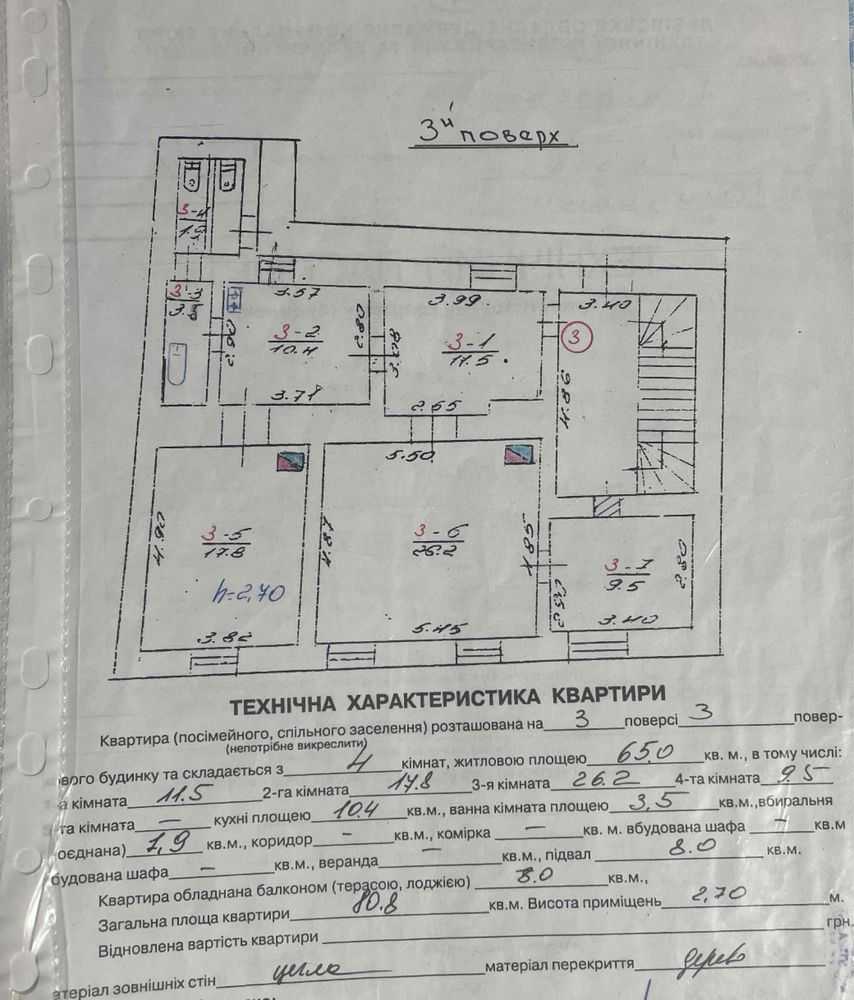 3й поверх
3-4
1.9
3-3
3.5
3.57
3-2
10.4
2.90
2.80
3.71
3.99
3-1
11.5
3.08
2.65
3.40
3
4.86
5.50
4.90
3-5
17.8
h=2,70
3.82
4.87
3-6
26.2
4.85
5.45
3-7
9.5
2.80
3.40
ТЕХНІЧНА ХАРАКТЕРИСТИКА КВАРТИРИ
Квартира (посімейного, спільного заселення) розташована на 3 поверсі 3 повер-
(непотрібне викреслити)
ового будинку та складається з 4 кімнат, житловою площею 65.0 кв. м., в тому числі:
а кімната 11.5 2-га кімната 17.8 3-я кімната 26.2 4-та кімната 9.5
та кімната — кухні площею 10.4 кв.м., ванна кімната площею 3,5 кв.м.,вбиральня
оєднана) 1,9 кв.м., коридор - кв.м., комірка — кв. м. вбудована шафа — кв.м
будована шафа — кв.м., веранда — кв.м., підвал 8.0 кв.м.
Квартира обладнана балконом (терасою, лоджією) 8.0 кв.м.,
Загальна площа квартири 80.8 кв.м. Висота приміщень 2,70 м.
Відновлена вартість квартири грн.
атеріал зовнішніх стін цегла матеріал перекриття дерево